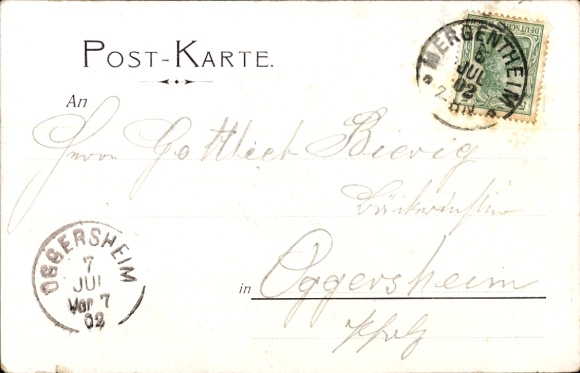 POST-KARTE.
MERGENTHEIM
6
JUL
02
DEUTSCHES
An
Herrn Gottlieb Bierig
OGGERSHEIM
7
JUL
Vor 7
02
in Oggersheim
Pfalz